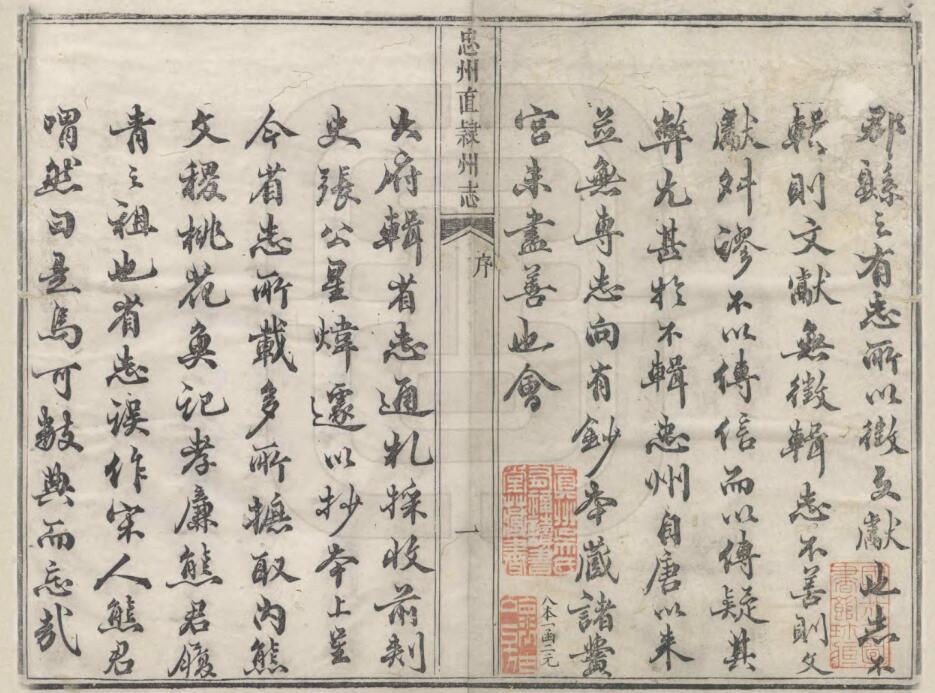 郡縣之有志所以徵文獻也志不
輯則文獻無徵輯志不善則文
獻舛謬不以傳信而以傳疑其
弊尤甚於不輯忠州自唐以來
並無專志向有鈔本藏諸黌
宮未盡善也會
八本一函一元
忠州直隸州志
序
一
大府輯省志通札採收前刺
史張公星煒遂以抄本上呈
今省志所載多所摭取內熊
文稷桃花魚記孝廉熊君履
青之祖也省志誤作宋人熊君
喟然曰是烏可數典而忘哉